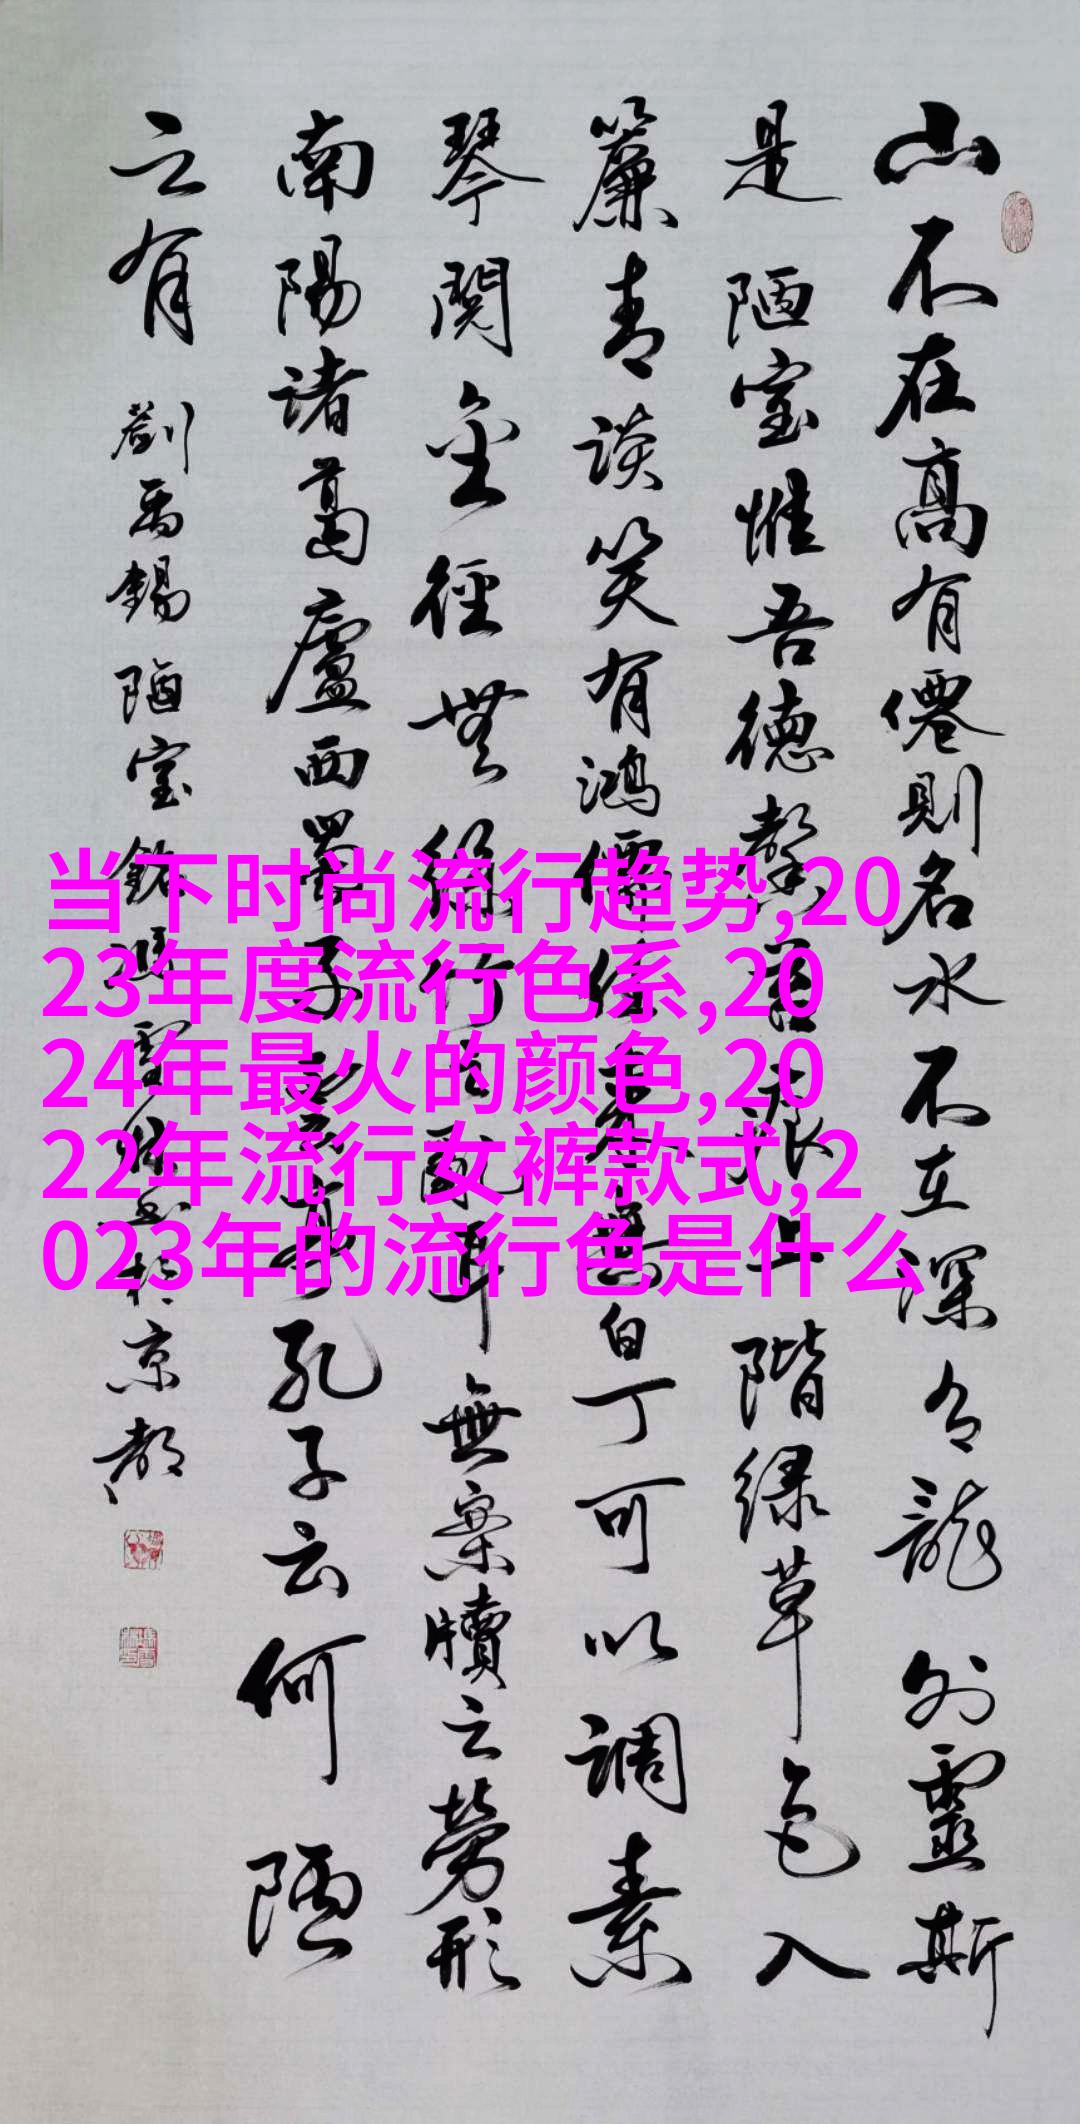 山不在高有僊則名水不在深有龍則靈斯
是陋室惟吾德馨苔痕上階緑草色入
簾青談笑有鴻儒往来無白丁可以調素
琴閲金徑無絲竹之亂耳無案牘之勞形
南陽諸葛廬西蜀子雲亭孔子云何陋
之有 劉禹錫陋室銘 京都
当下时尚流行趋势,20
23年度流行色系,20
24年最火的颜色,20
22年流行女裤款式,2
023年的流行色是什么